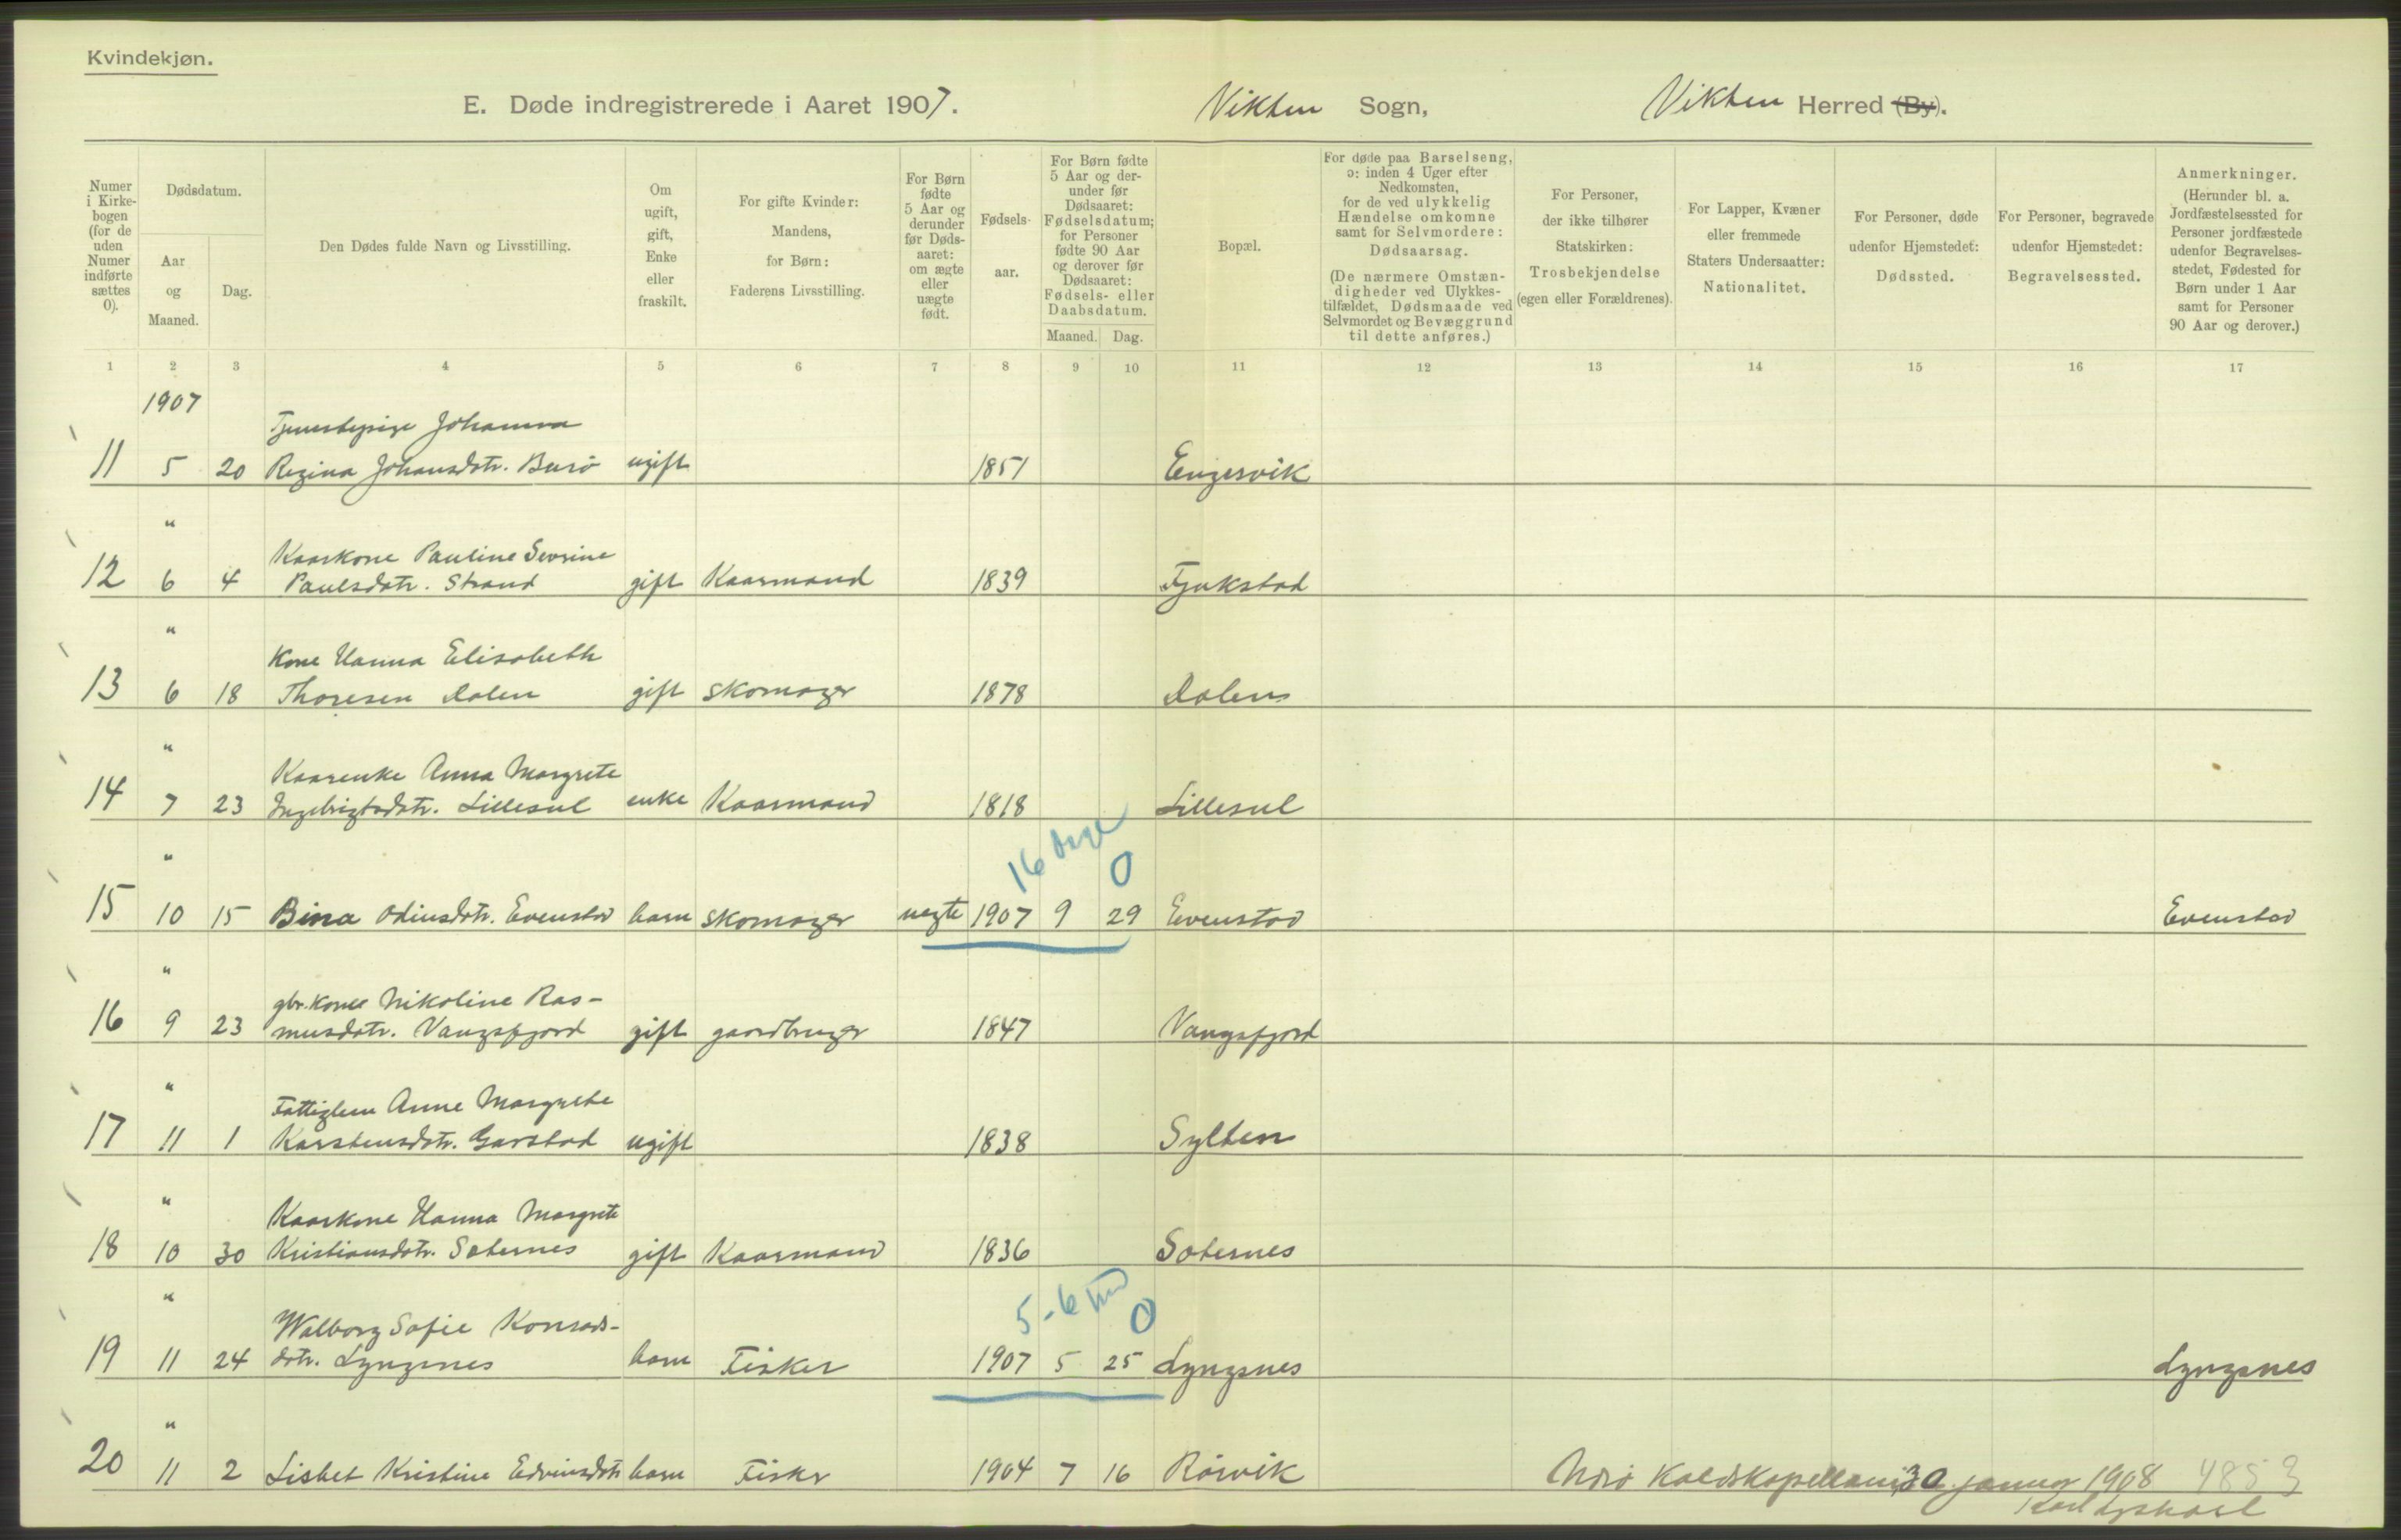 Kvindekjøn.
E. Døde indregistrerede i Aaret 1907. Vikten Sogn, Vikten Herred (By).
Numer i Kirkebogen (for de uden Numer indførte sættes 0).
Dødsdatum.
Aar og Maaned.
Dag.
Den Dødes fulde Navn og Livsstilling.
Om ugift, gift, Enke eller fraskilt.
For gifte Kvinder: Mandens, for Børn: Faderens Livsstilling.
For Børn fødte 5 Aar og derunder før Dødsaaret: om ægte eller uægte født.
Fødselsaar.
For Børn fødte 5 Aar og derunder før Dødsaaret: Fødselsdatum; for Personer fødte 90 Aar og derover før Dødsaaret: Fødsels- eller Daabsdatum.
Maaned. Dag.
Bopæl.
For døde paa Barselseng, ɔ: inden 4 Uger efter Nedkomsten, for de ved ulykkelig Hændelse omkomne samt for Selvmordere: Dødsaarsag. (De nærmere Omstændigheder ved Ulykkestilfældet, Dødsmaade ved Selvmordet og Bevæggrund til dette anføres.)
For Personer, der ikke tilhører Statskirken: Trosbekjendelse (egen eller Forældrenes).
For Lapper, Kvæner eller fremmede Staters Undersaatter: Nationalitet.
For Personer, døde udenfor Hjemstedet: Dødssted.
For Personer, begravede udenfor Hjemstedet: Begravelsessted.
Anmerkninger. (Herunder bl. a. Jordfæstelsessted for Personer jordfæstede udenfor Begravelsesstedet, Fødested for Børn under 1 Aar samt for Personer 90 Aar og derover.)
1 2 3 4 5 6 7 8 9 10 11 12 13 14 15 16 17
1907
Tjenestepige Johanna
11 5 20 Regina Johansdtr. Burø ugift 1851 Engesvik
"
Kaarkone Pauline Sevrine
12 6 4 Paulsdatr. Strand gift Kaarmand 1839 Fjukstad
"
Kone Hanna Elisabeth
13 6 18 Thoresen Dalen gift skomager 1878 Dalen
"
Kaarenke Anna Margrete
14 7 23 Ingebrigtsdatr. Lillesul enke Kaarmand 1818 Lillesul
16 dage
0
"
15 10 15 Bina Odinsdtr. Evenstad barn skomager uegte 1907 9 29 Evenstad Evenstad
"
gbr. kone Nikoline Ras-
16 9 23 musdatr. Vangsfjord gift gaardbruger 1847 Vangsfjord
"
Fattiglem Anne Margrethe
17 11 1 Karstensdtr. Garstad ugift 1838 Sylten
"
Kaarkone Hanna Margrete
18 10 30 Kristiansdatr. Saternes gift Kaarmand 1836 Saternes
5-6 md
0
"
Walborg Sofie Konrads-
19 11 24 dtr. Lyngsnes barn Fisker 1907 5 25 Lyngsnes Lyngsnes
"
20 11 2 Lisbet Kristine Edvinsdtr barn Fisker 1904 7 16 Rörvik
Kaldskapellani, 30 januar 1908 4853